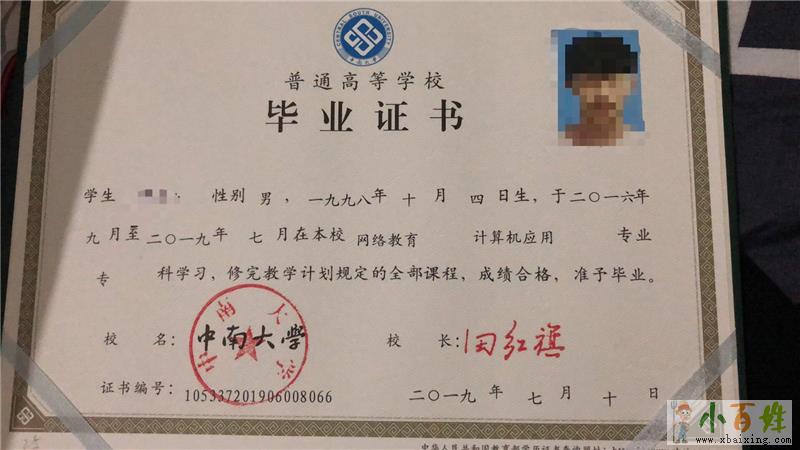 CENTRAL SOUTH UNIVERSITY
中南大学
普通高等学校
毕业证书
学生 性别 男，一九九八年 十 月 四 日生，于二〇一六年
九 月至 二〇一九年 七 月在本校 网络教育 计算机应用 专业
专 科学习，修完教学计划规定的全部课程，成绩合格，准予毕业。
校 名：中南大学
中南大学
校 长：田红旗
证书编号：105337201906008066
二〇一九年 七 月 十 日
中华人民共和国教育部学历证书查询网址：
小百姓
www.xbaixing.com